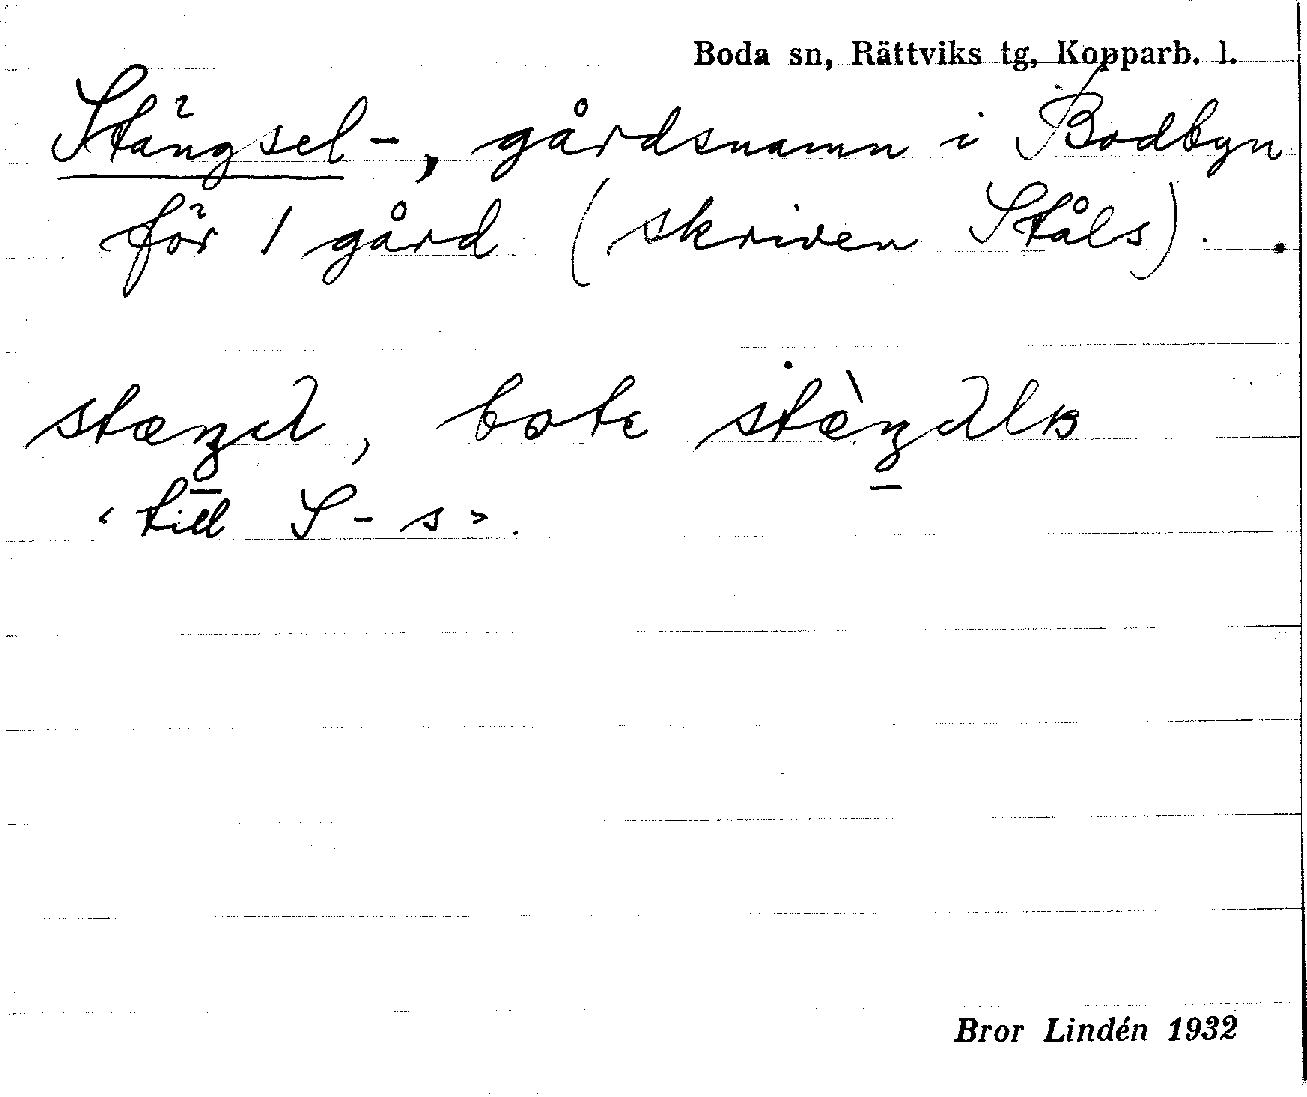 Boda sn, Rättviks tg, Kopparb. l.
Stängsel-, gårdsnamn i Bodbyn
för 1 gård (skriven Ståls).
‹till S-s›.
Bror Lindén 1932